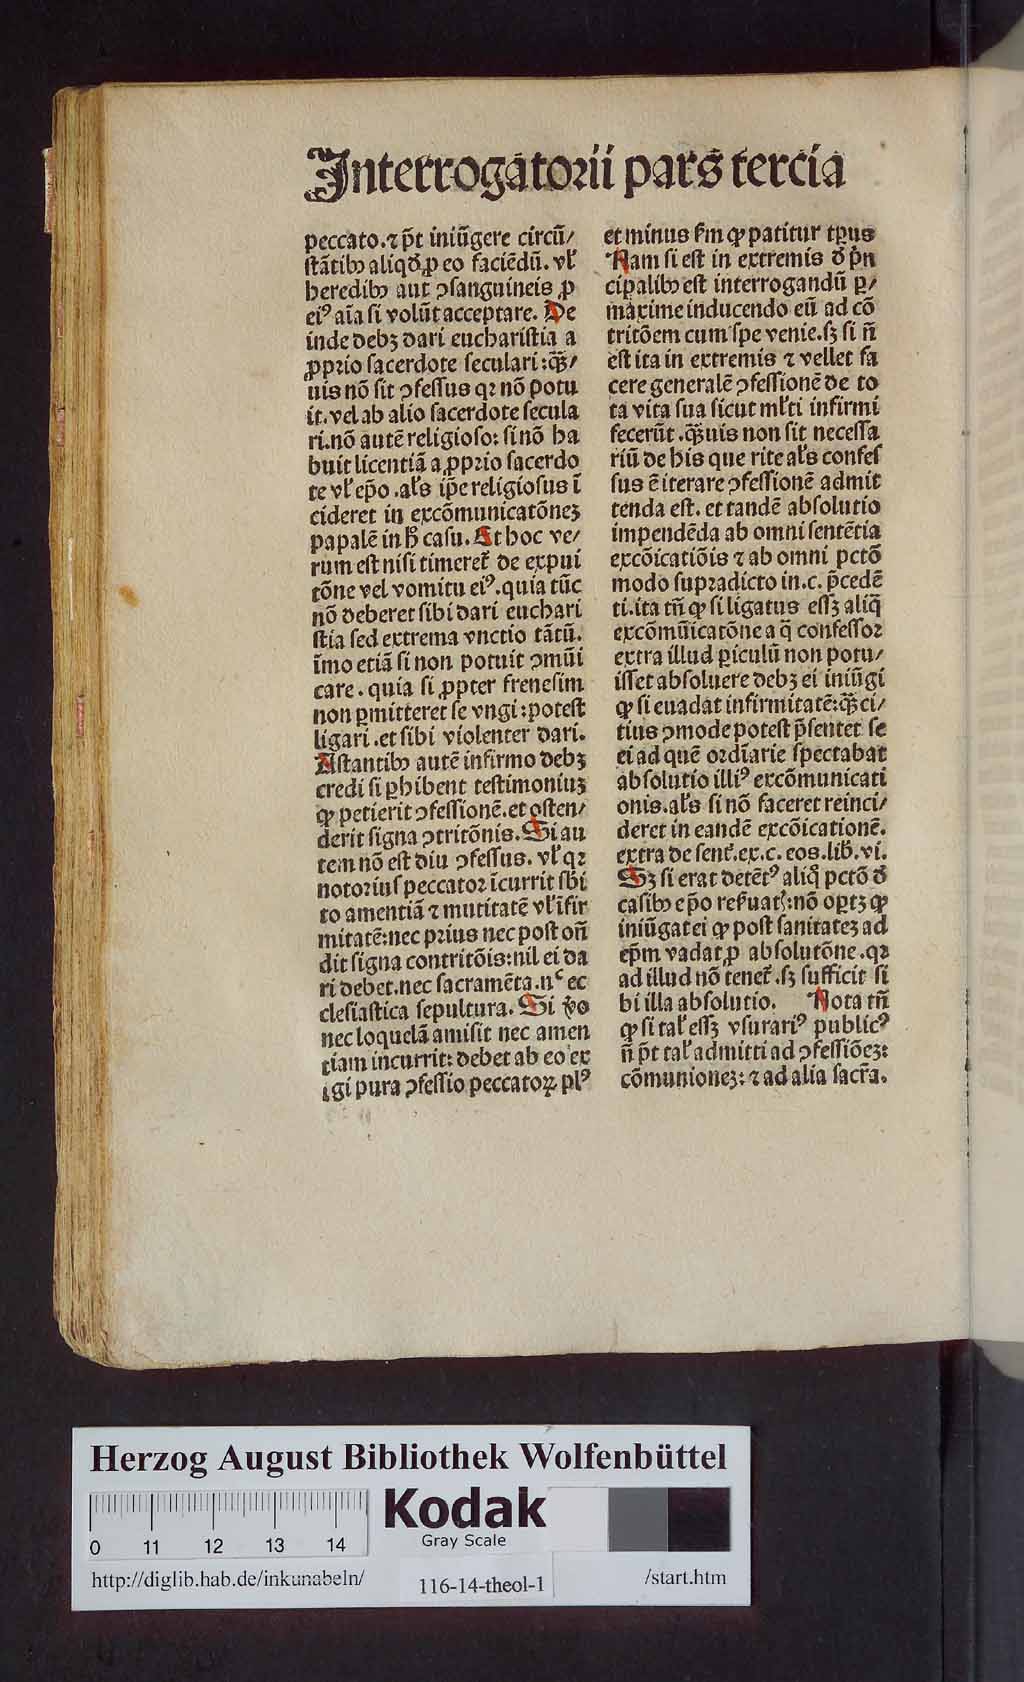 Interrogatorii pars tercia
peccato.⁊ p̄t iniūgere circū/
stātibꝫ aliqd̕ ꝓ eo faciēdū. vl̕
heredibꝫ aut ↄsanguineis ꝓ
eiꝰ aīa si volūt acceptare. De
inde debꝫ dari eucharistia a
ꝓprio sacerdote seculari:qꝫ̄/
uis nō sit ↄfessus qꝛ nō potu
it. vel ab alio sacerdote secula
ri.nō autē religioso: si nō ha
buit licentiā a ꝓprio sacerdo
te vl̕ ep̄o .al̕s ip̄e religiosus ī
cideret in excōmunicatōneꝫ
papalē in h̕ casu. Et hoc ve/
rum est nisi timeret̕ de expui
tōne vel vomitu eiꝰ. quia tūc
nō deberet sibi dari euchari
stia sed extrema vnctio tātū.
īmo etiā si non potuit ↄmūi
care. quia si ꝓpter frenesim
non ꝑmitteret se vngi: potest
ligari .et sibi violenter dari.
Astantibꝫ autē infirmo debꝫ
credi si ꝑhibent testimoniuꝫ
ꝙ petierit ↄfessionē.et osten/
derit signa ↄtritōnis. Si au
tem nō est diu ↄfessus. vl̕ qꝛ
notorius peccator īcurrit sbi
to amentiā ⁊ mutitatē vl̕ īfir
mitatē: nec prius nec post on̄
dit signa contritōis: nil ei da
ri debet.nec sacramēta.nᶜ ec
clesiastica sepultura. Si v̕o
nec loquelā amisit nec amen
tiam incurrit: debet ab eo ex
igi pura ↄfessio peccatoꝝ plꝰ
et minus ẜm ꝙ patitur tꝑus
Nam si est in extremis d̕ p̄n
cipalibꝫ est interrogandū ꝑ/
maxime inducendo eū ad cō
tritōem cum spe venie.sꝫ si n̄
est ita in extremis ⁊ vellet fa
cere generalē ↄfessionē de to
ta vita sua sicut ml̕ti infirmi
fecerūt .qꝫ̄uis non sit necessa
riū de his que rite al̕s confes
sus ē iterare ↄfessionē admit
tenda est. et tandē absolutio
impendēda ab omni sentētia
excōicatiōis ⁊ ab omni pctō
modo supradicto in.c. p̄cedē
ti.ita tn̄ ꝙ si ligatus essꝫ aliq̄
excōmūicatōne a q̄ confessor
extra illud ꝑiculū non potu/
isset absoluere debꝫ ei iniūgi
ꝙ si euadat infirmitatē:qꝫ̄ ci/
tius ↄmode potest p̄sentet se
ei ad quē ordīarie spectabat
absolutio illiꝰ excōmunicati
onis.al̕s si nō faceret reinci/
deret in eandē excōicationē.
extra de sent̕.ex.c. eos.lib̕. vi.
Sꝫ si erat detētꝰ aliq̊ pctō d̕
casibꝫ ep̄o rẜuat̕:nō oꝑtꝫ ꝙ
iniūgat ei ꝙ post sanitateꝫ ad
ep̄m vadat ꝓ absolutōne.qꝛ
ad illud nō tenet̕ .sꝫ sufficit si
bi illa absolutio. Nota tn̄
ꝙ si tal̕ essꝫ vsurariꝰ publicꝰ
n̄ p̄t tal̕ admitti ad ↄfessiōeꝫ:
cōmunioneꝫ: ⁊ ad alia sacr̄a.
Herzog August Bibliothek Wolfenbüttel
Kodak
Gray Scale
0 11 12 13 14
http://diglib.hab.de/inkunabeln/
116-14-theol-1
/start.htm